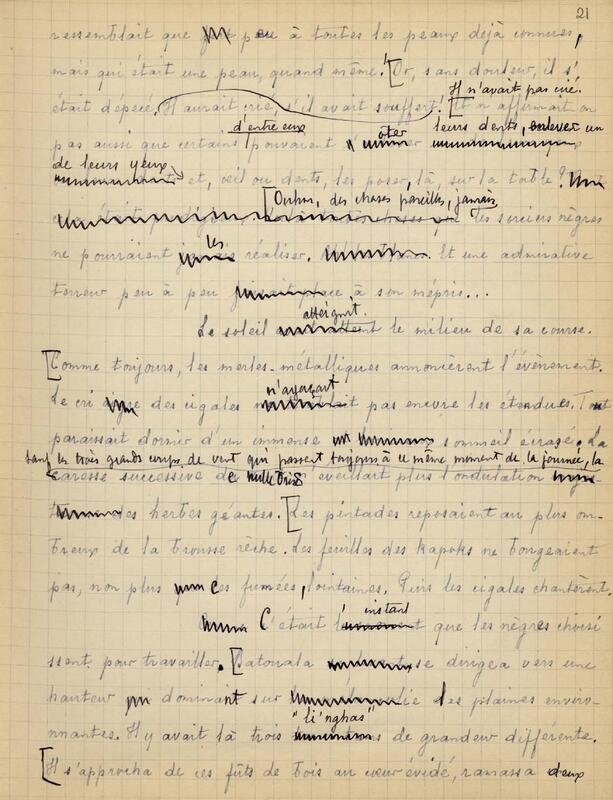 21
ressemblait que peu à toutes les peaux déjà connues,
mais qui était une peau, quand même. [Or, sans douleur, il s'
Il n'avait pas crié.
était dépecé. Il aurait crié, s'il avait souffert! [Et n'affirmait-on
d'entre eux ôter leurs dents, enlever un
pas aussi que certains pouvaient
de leurs yeux
et, œil ou dents, les poser, là, sur la table?
[Ouhou, des choses pareilles, jamais
les sorciers nègres
les
ne pourraient réaliser. Et une admirative
terreur peu à peu à son mépris...
atteignit
Le soleil le milieu de sa course.
[Comme toujours, les merles-métalliques annoncèrent l'évènement.
n'agaçait
Le cri des cigales pas encore les étendues. Tout
paraissait dormir d'un immense sommeil écrasé. La
Sauf les très grands coups de vent qui passent toujours à ce même moment de la journée, la
caresse successive de mille brises éveillait plus l'ondulation
des herbes géantes. [Les pintades reposaient au plus om-
breux de la brousse rêche. Les feuilles des kapoks ne bougeaient
pas, non plus ces fumées, lointaines. Puis les cigales chantèrent.
instant
C'était l' que les nègres choisi
ssent pour travailler. [Batouala se dirigea vers une
hauteur dominant sur les plaines enviro-
"li'nghas"
nnantes. Il y avait là trois de grandeur différente.
[Il s'approcha de ces fûts de bois au cœur évidé, ramassa deux